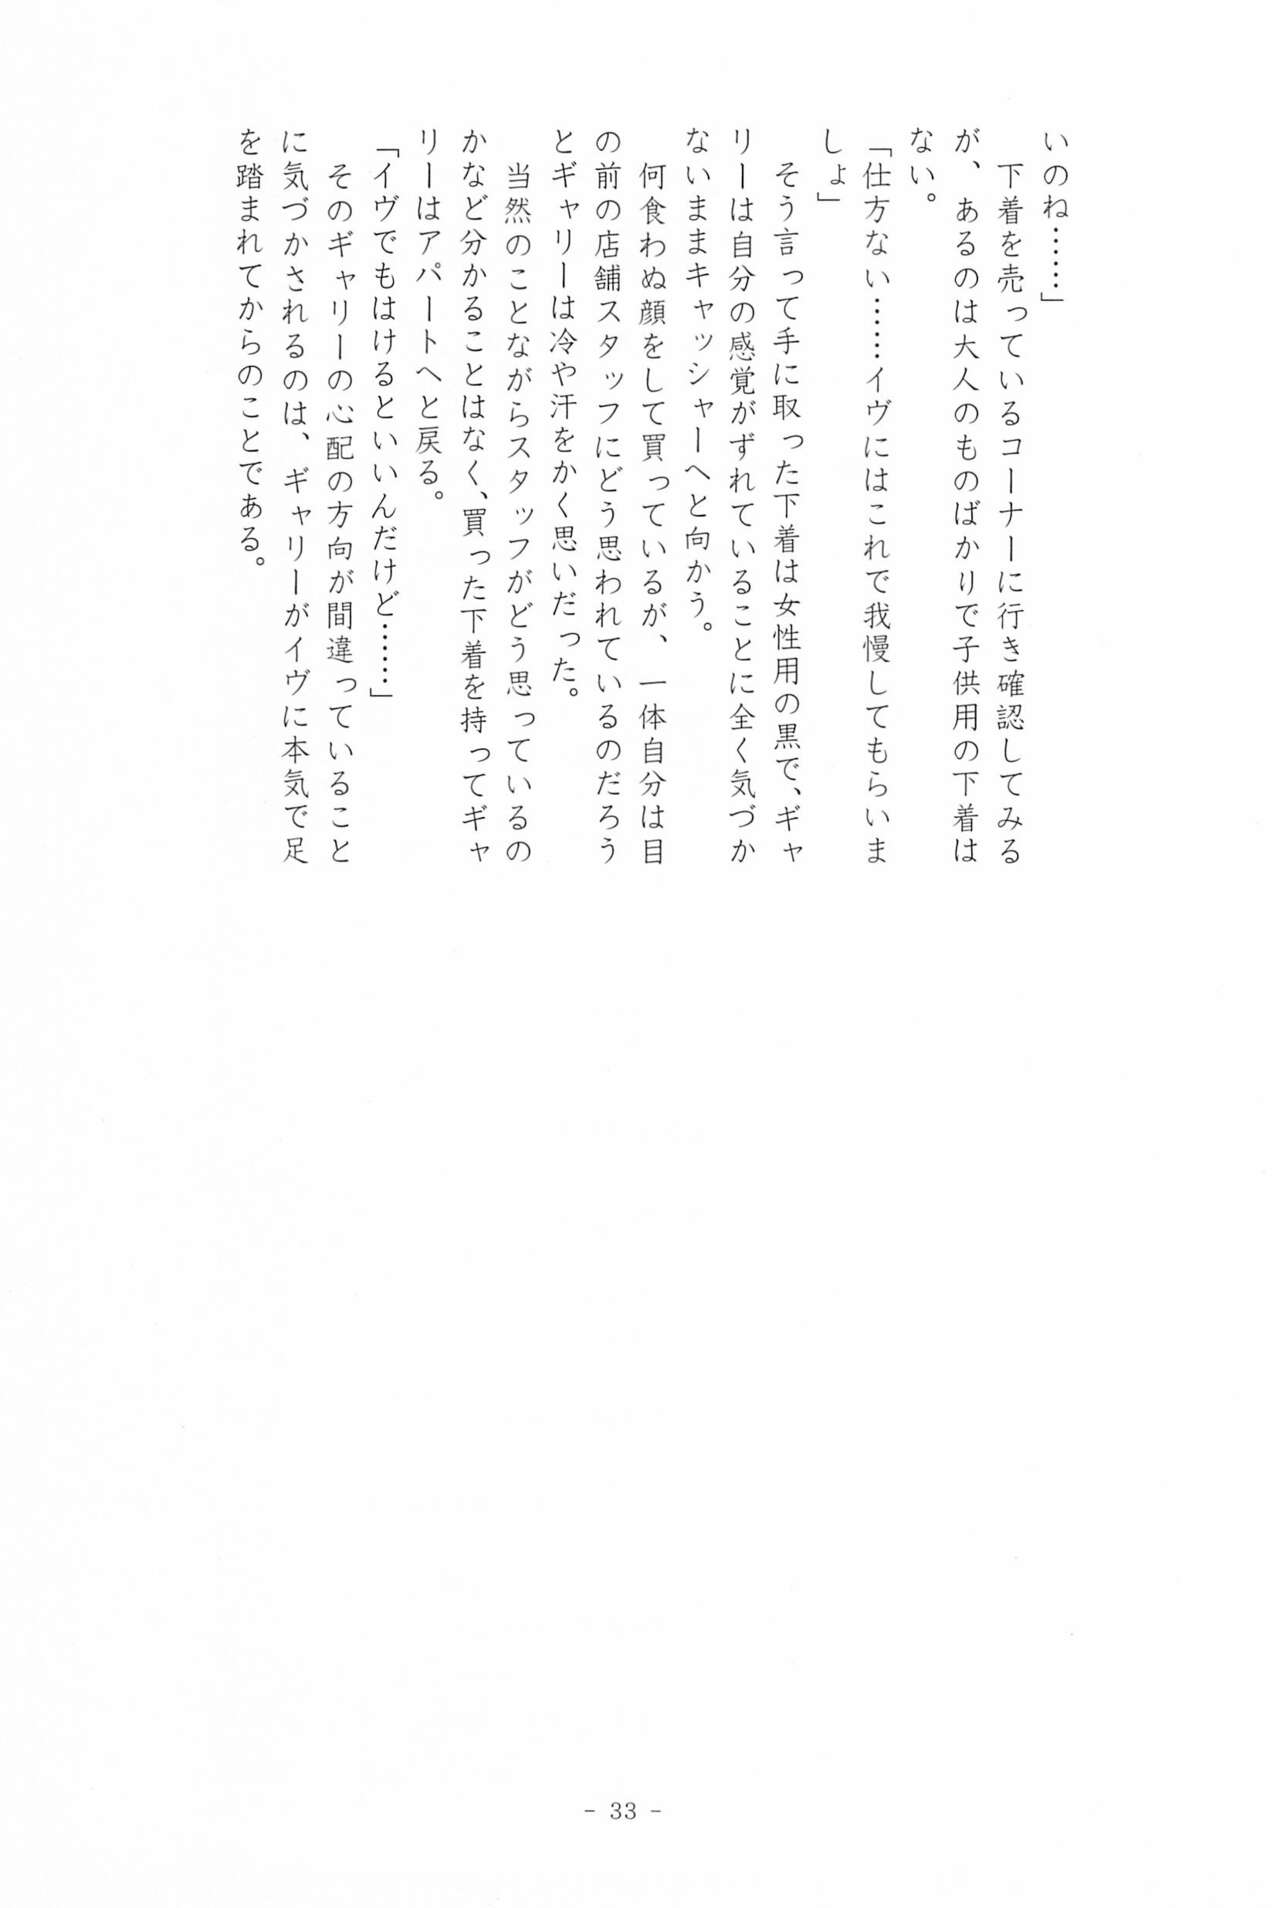 いのね……」
　下着を売っているコーナーに行き確認してみる
が、あるのは大人のものばかりで子供用の下着は
ない。
「仕方ない……イヴにはこれで我慢してもらいま
しょ」
　そう言って手に取った下着は女性用の黒で、ギャ
リーは自分の感覚がずれていることに全く気づか
ないままキャッシャーへと向かう。
　何食わぬ顔をして買っているが、一体自分は目
の前の店舗スタッフにどう思われているのだろう
とギャリーは冷や汗をかく思いだった。
　当然のことながらスタッフがどう思っているの
かなど分かることはなく、買った下着を持ってギャ
リーはアパートへと戻る。
「イヴでもはけるといいんだけど……」
　そのギャリーの心配の方向が間違っていること
に気づかされるのは、ギャリーがイヴに本気で足
を踏まれてからのことである。
- 33 -